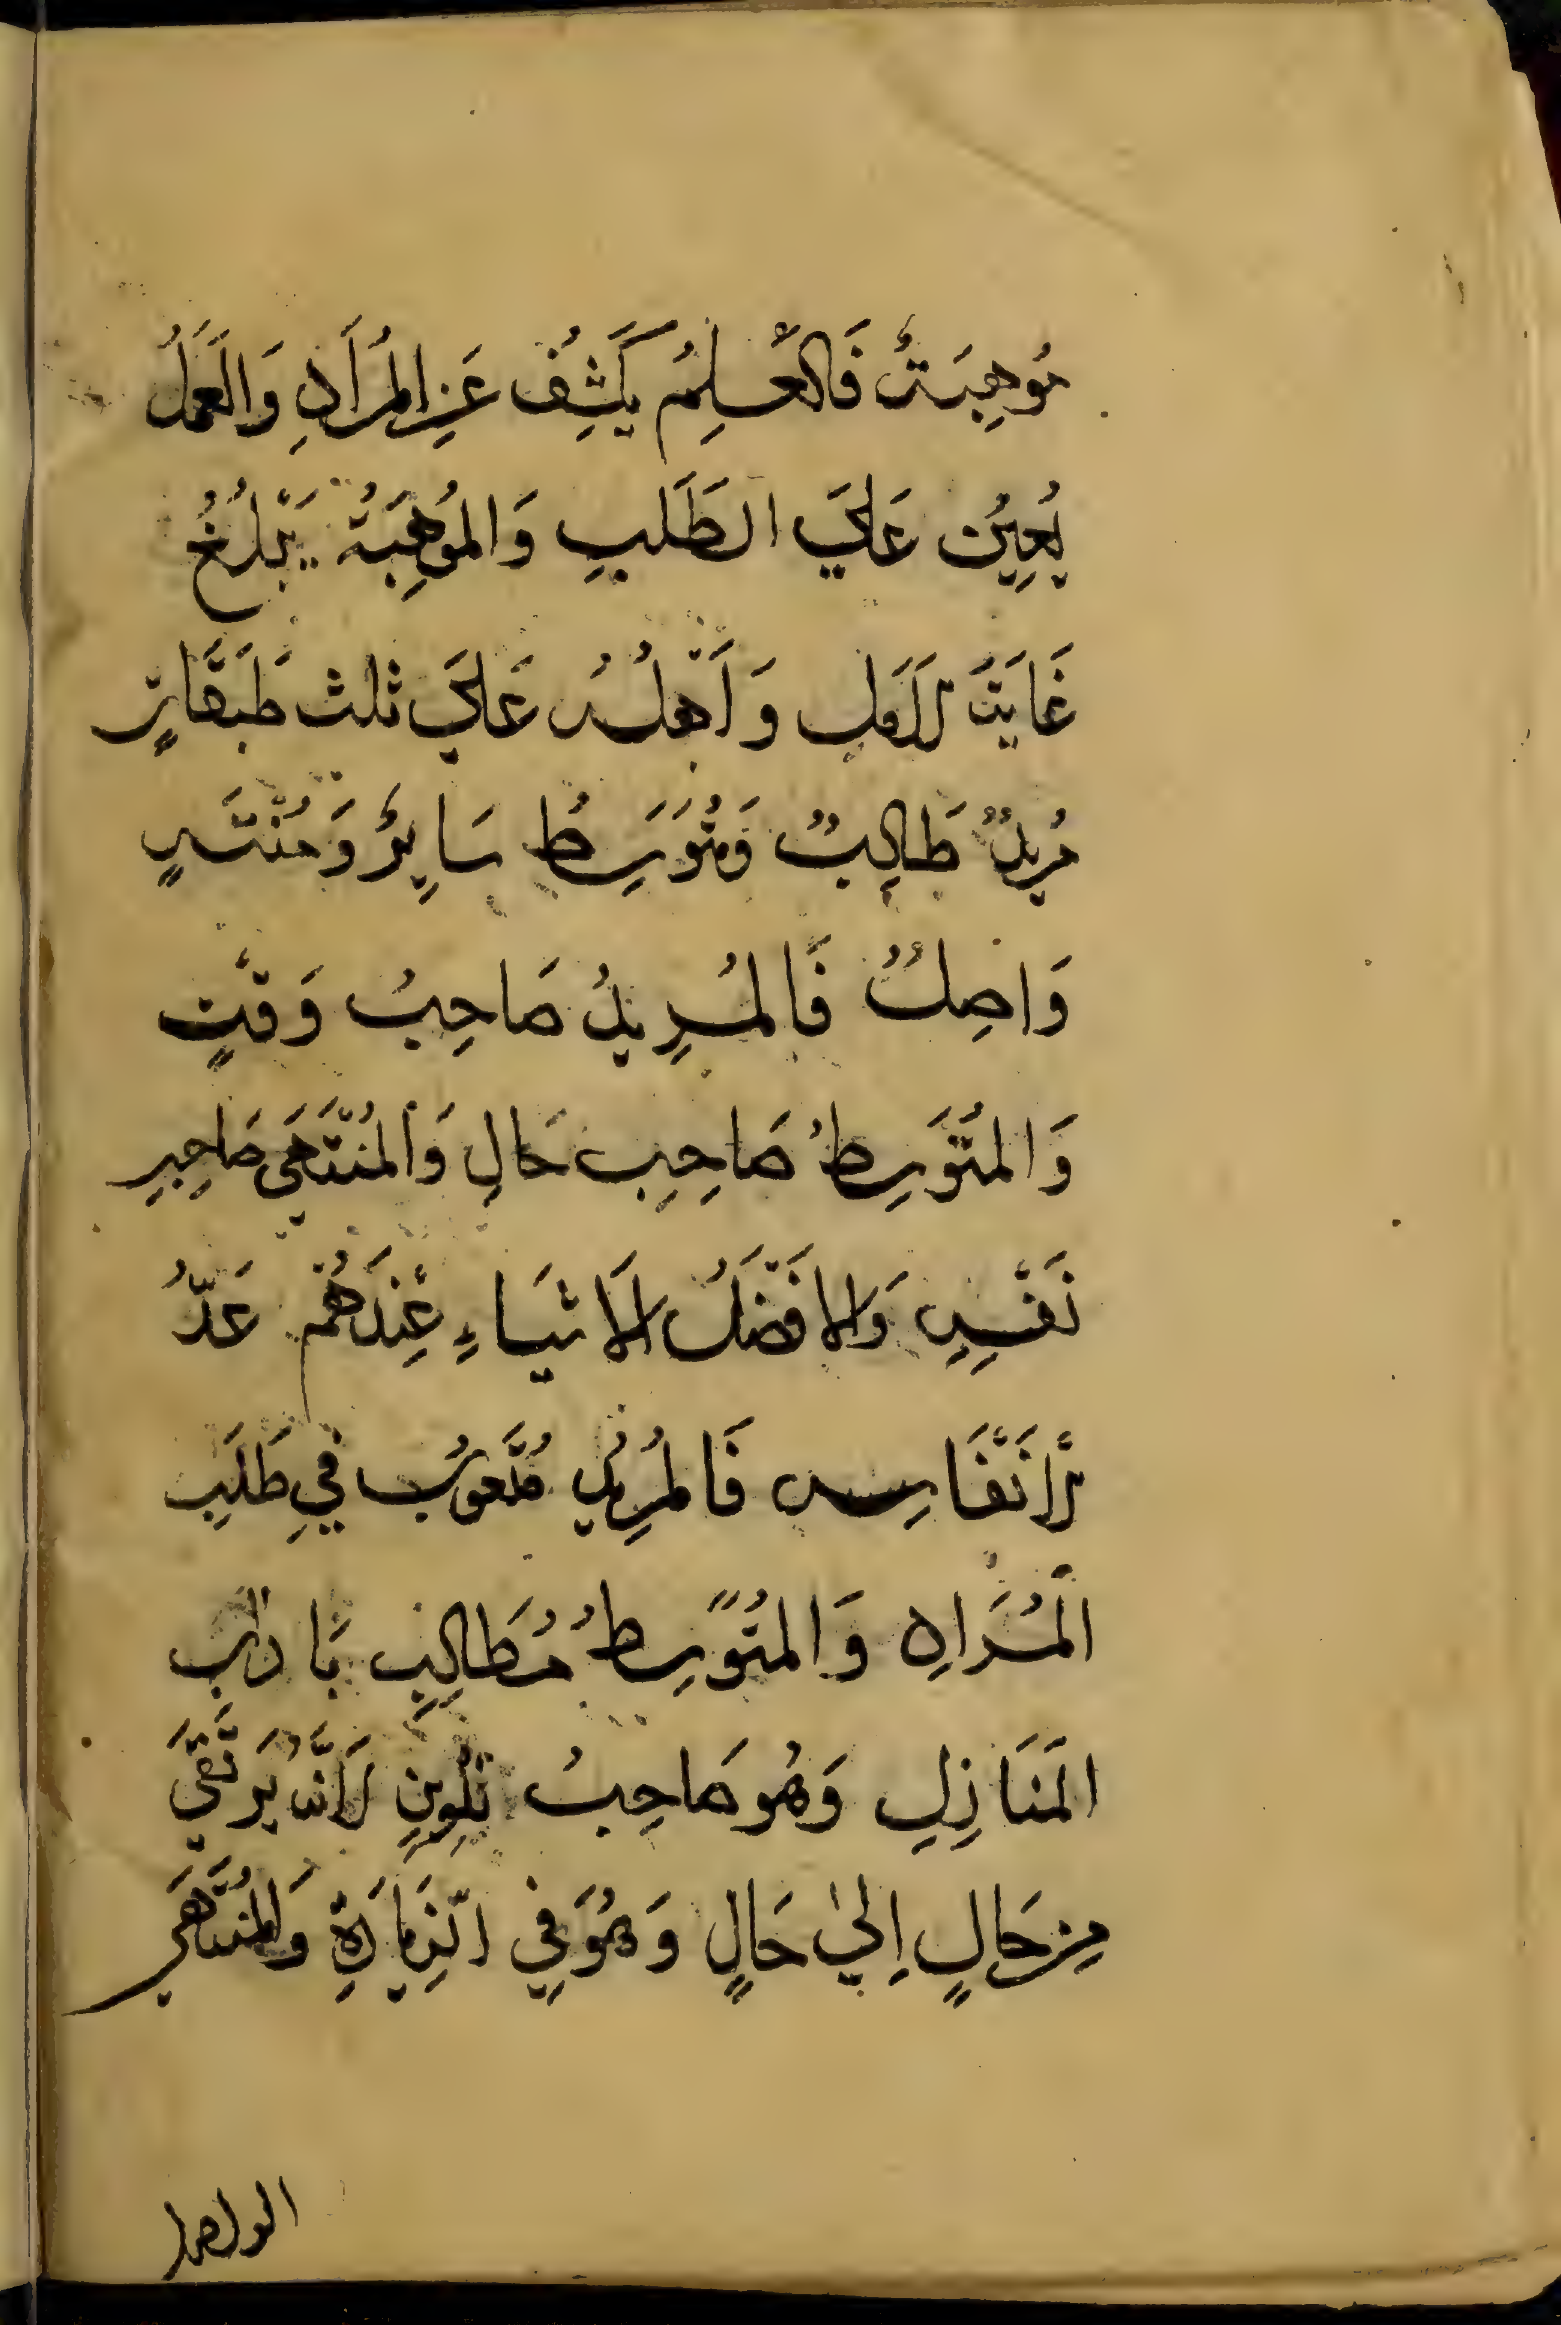 مُوهِبَةٌ فَالْعِلْمُ يَكْشِفُ عَنِ الْمُرَادِ وَالْعَمَلُ
يُعِيْنُ عَلَي الطَّلَبِ وَالْمُوهِبَةُ يَبْلُغُ
غَايَةَ الْاَمَلِ وَاَهْلُهُ عَلَي ثلث طَبَقَاتٍ
مُرِيدٌ طَالِبٌ وَمُتَوَسِطٌ سَايِرٌ وَمُنْتَهٍ
وَاصِلٌ فَالْمُرِيدُ صَاحِبُ وَقْتٍ
وَالْمُتَوَسِطُ صَاحِبِ حَالٍ وَالْمُنْتَهَى صَاحِبِ
نَفْسٍ وَالافْضَلُ الْاشَيَاءِ عِنْدَهُمْ عَدُّ
الْاَنْفَاسِ فَالْمُرِيدِ مُتْعوبٌ فِي طَلَبِ
الْمُرَادِ وَالْمُتَوَسِطُ مُطَالِبٌ بَادَابِ
الْمَنَازِلِ وَهُوَ صَاحِبُ تَلْوِينٍ لَاَنَّهُ يَرْتَقَي
مِنْ حَالٍ اِلَي حَالٍ وَهُوَ فِي الزِّيَادَةِ وَالْمُنْتَهَي
الواصل